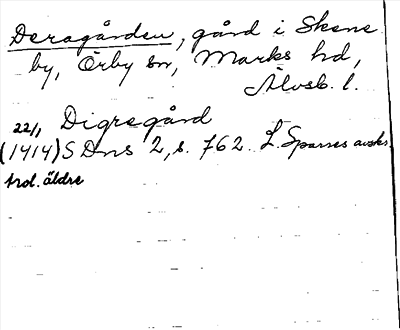 Deragården, gård i Skene
by, Örby sn, Marks hd,
Älvsb. l.
22/1 Digregård
(1414) SDns 2, s. 762. L. Sparres avskr.
hd. äldre